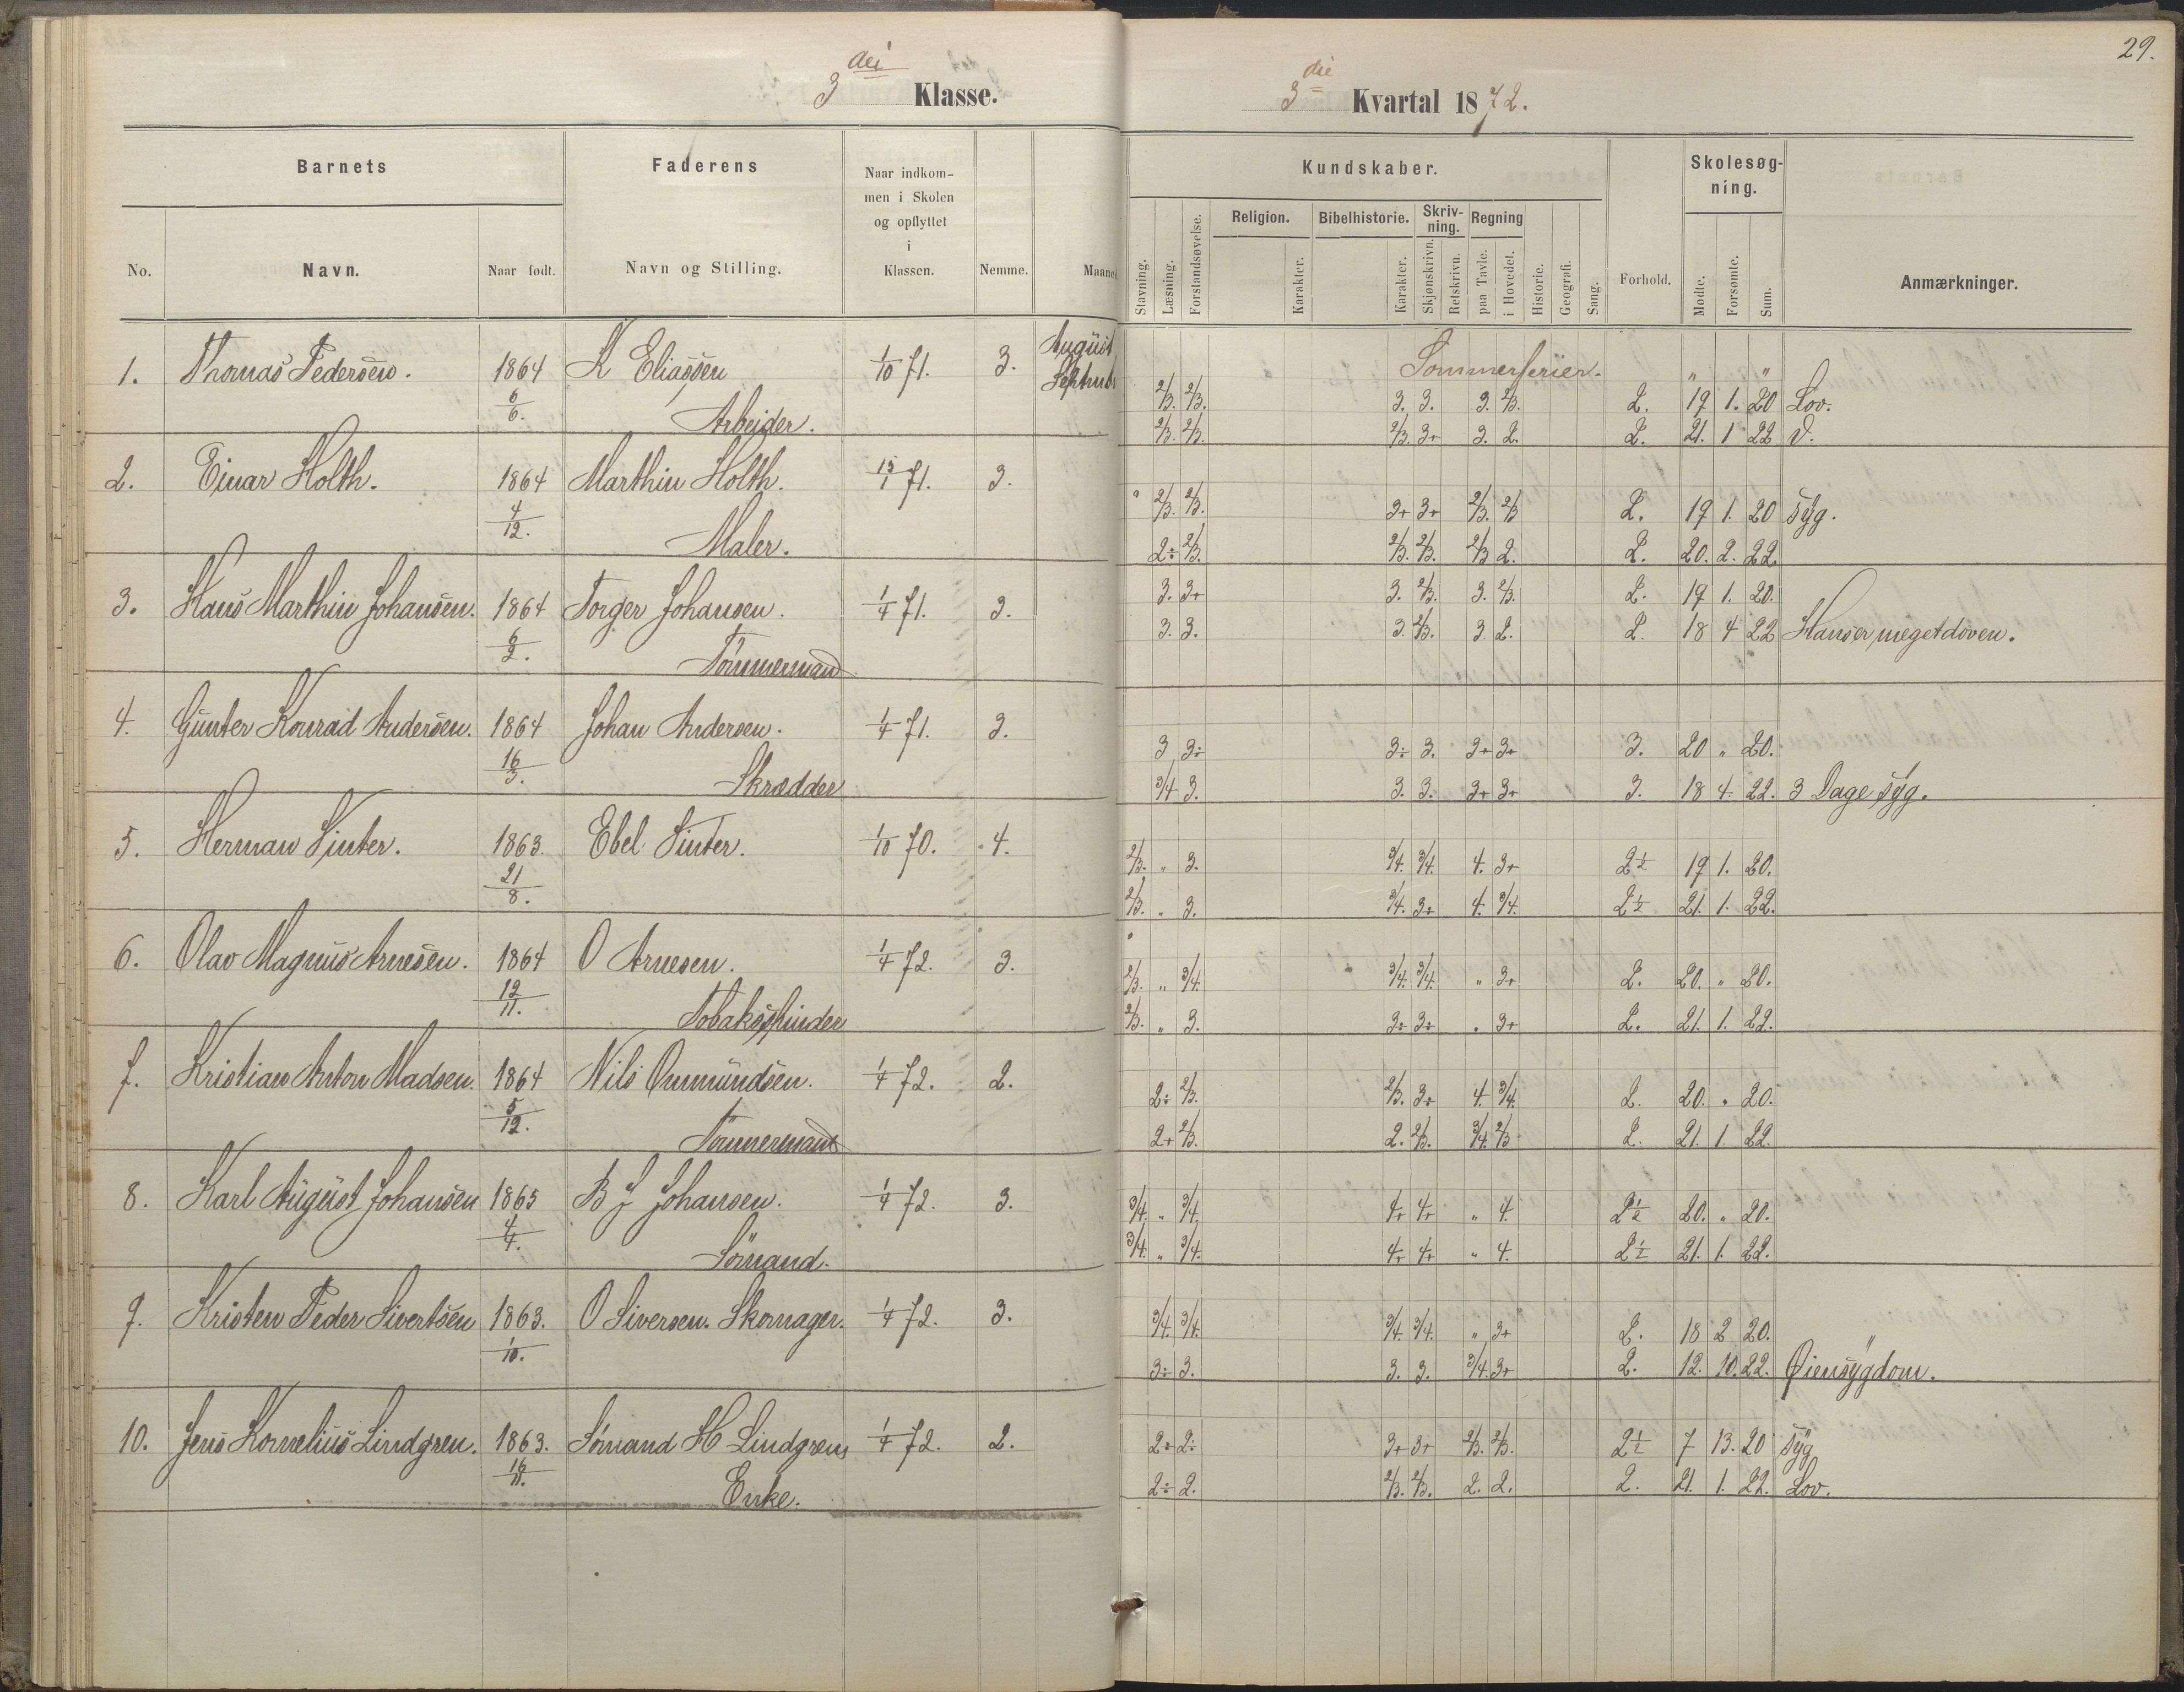 29.
3die Klasse.
3die Kvartal 1872.
Barnets
Faderens
Naar indkom-
men i Skolen
og opflyttet
i
Klassen.
No.
Navn.
Naar født.
Navn og Stilling.
Nemme.
Maaned
Kundskaber.
Skolesøg-
ning.
Religion.
Bibelhistorie.
Skriv-
ning.
Regning
Stavning.
Læsning.
Forstandsøvelse.
Karakter.
Karakter.
Skjønskrivn.
Retskrivn.
paa Tavle.
i Hovedet.
Historie.
Geografi.
Sang.
Forhold.
Mødte.
Forsømte.
Sum.
Anmærkninger.
August
Sommerferier. " "
1. Thomas Pedersen. 1864 K Eliassen 1/10 71. 3. Septemb
6/6. Arbeider.
2/3. 2/3. 3. 3. 3. 2/3. 2. 19 1. 20 Lov.
2/3. 2/3. 2/3. 3+ 3. 2. 2. 21. 1 22 D.
2. Einar Holth. 1864 Marthin Holth. 13/1 71. 3.
4/12. Maler.
" 2/3. 2/3. 3+ 3+ 2/3. 2/3 2. 19 1. 20 syg.
2÷ 2/3. 2/3. 2/3. 2/3 2. 2. 20. 2. 22.
3. Hans Marthin Johansen. 1864 Torger Johansen. 1/4 71. 3.
6/2. Tømmermand
3. 3+ 3. 2/3. 3. 2/3. 2. 19 1. 20.
3. 3. 3. 2/3. 3. 2. 2. 18 4 22 Han er meget doven.
4. Gunter Konrad Andersen. 1864 Johan Andersen. 1/4 71. 3.
16/3. Skrædder
3 3÷ 3÷ 3. 3+ 3+ 3. 20 " 20.
3/4 3. 3. 3. 3+ 3+ 3. 18 4. 22. 3 Dage syg.
5. Herman Sinter. 1863. Ebel Sinter. 1/10 70. 4.
21/8.
2/3. " 3. 3/4. 3/4. 4. 3+ 2½ 19 1. 20.
2/3. " 3. 3/4. 3÷ 4. 3/4. 2½ 21. 1. 22.
6. Olav Magnus Arnesen. 1864 O Arnesen. 1/4 72. 3.
12/11. Tobakspinder
2/3. " 3/4. 3/4. 3/4. " 3+ 2. 20. " 20.
2/3. " 3. 3÷ 3÷ " 3+ 2. 21. 1. 22.
7. Kristian Anton Madsen. 1864 Nils Onmundsen. 1/4 72. 2.
5/12. Tømmermand
2÷ 2/3. 2/3. 3+ 4. 3/4. 2. 20. " 20.
2+ 2/3. 2. 2/3. 3/4. 2/3 2. 21. 1 22.
8. Karl August Johansen 1865 B J Johansen. 1/4 72. 3.
4/4. Sømand.
3/4. " 3/4. 4+ 4+ " 4. 2½ 20. " 20.
3/4. " 3/4. 4+ 4+ " 4. 2½ 21. 1. 22.
9. Kristen Peder Sivertsen 1863. O Siversen. Skomager. 1/4 72. 3.
1/10.
3/4. 3/4. 3/4. 3/4. " 3+ 2. 18 2 20. "
3÷ 3. 3. 3. 3/4. 3+ 2. 12. 10. 22. Øiensygdom.
10. Jens Kornelius Lindgren. 1863. Sømand H Lindgrens 1/4 72. 2.
18/11. Enke.
2÷ 2÷ 3+ 3+ 2/3. 2/3. 2½ 7 13. 20 syg
2÷ 2. 2/3. 2/3. 2. 2. 2. 21. 1. 22. Lov.